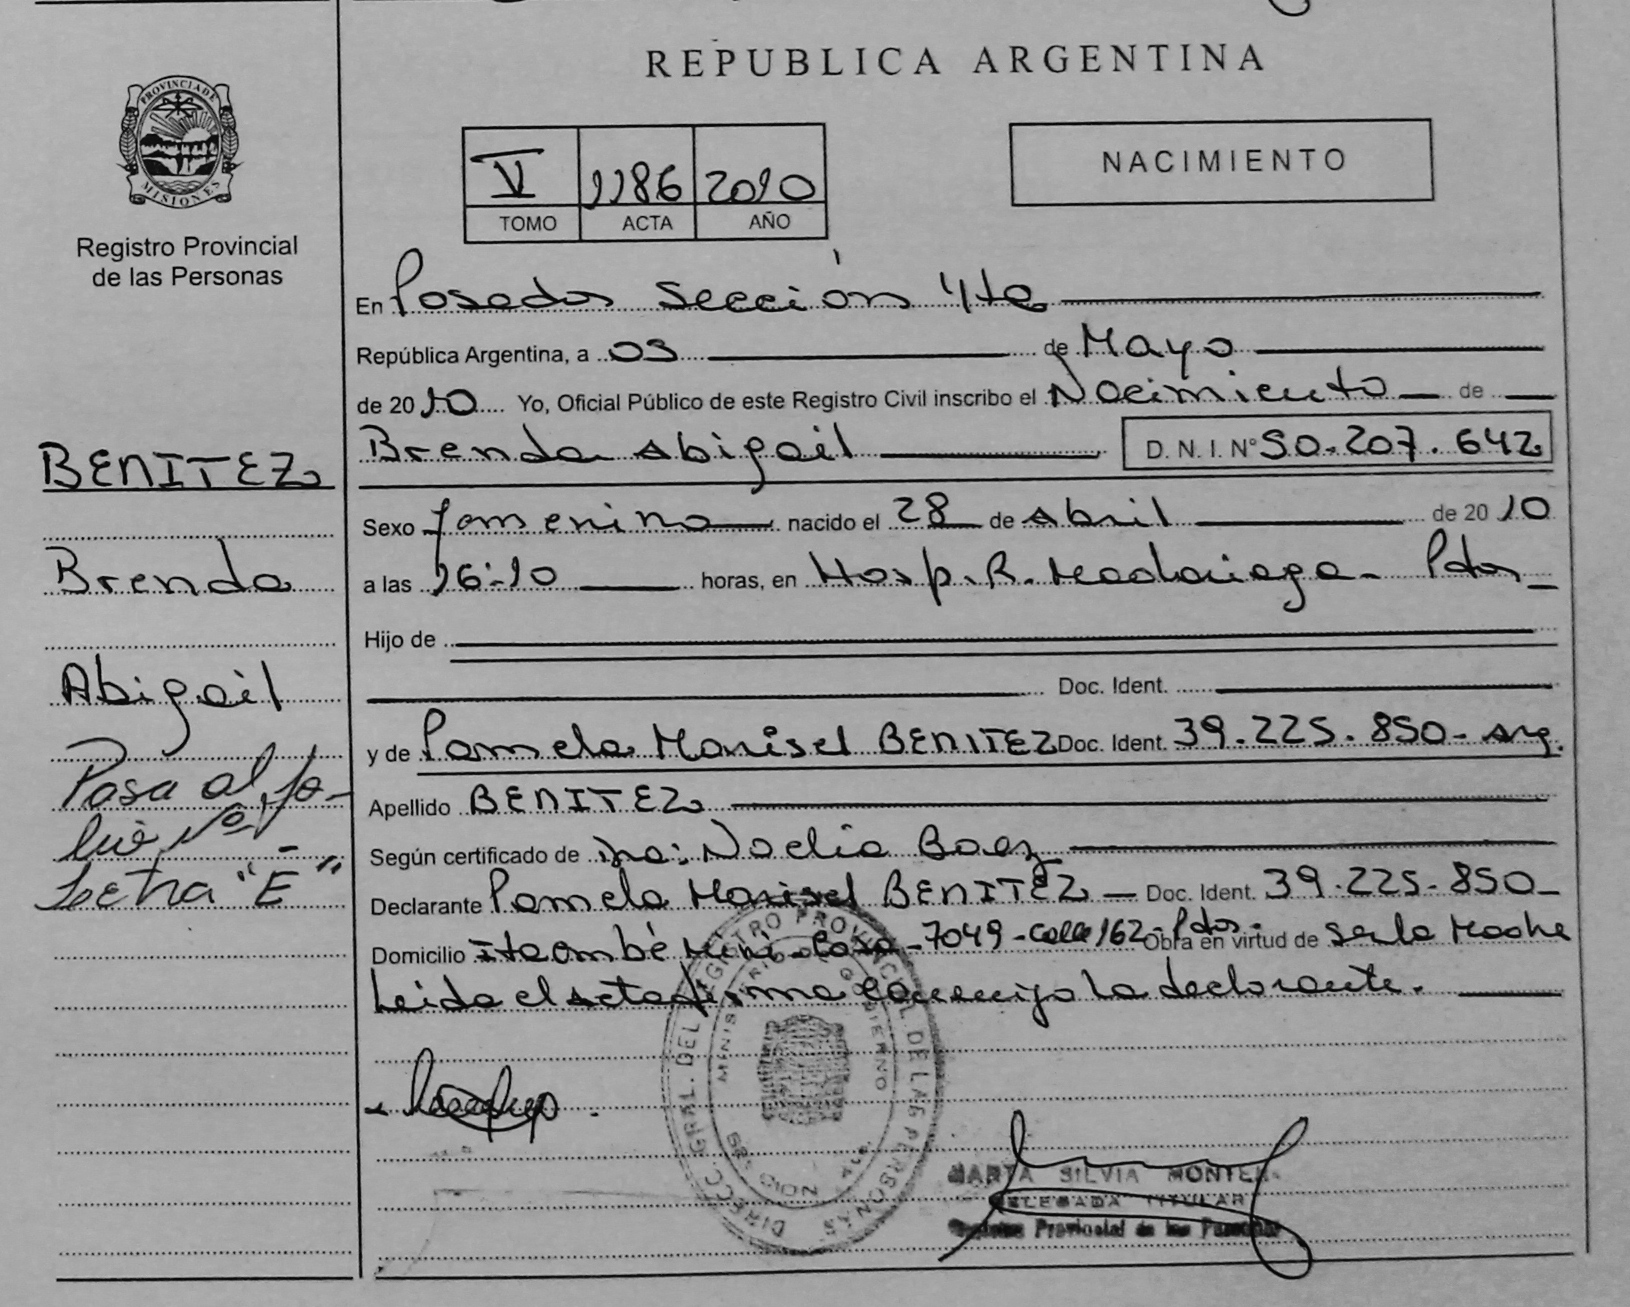 REPUBLICA ARGENTINA
PROVINCIA DE MISIONES
Registro Provincial
de las Personas
V 1186 2010
TOMO ACTA AÑO
NACIMIENTO
En Posadas Sección 4ta
República Argentina, a 03 de Mayo
de 2010 Yo, Oficial Público de este Registro Civil inscribo el Nacimiento de
Brenda Abigail D. N. I. Nº 50.207.642
Sexo femenino nacido el 28 de Abril de 2010
a las 16:10 horas, en Hosp. R. Madariaga - Pdas
Hijo de
Doc. Ident.
y de Pamela Marisel BENITEZ Doc. Ident. 39.225.850 - Arg.
Apellido BENITEZ
Según certificado de Noelia Baez
Declarante Pamela Marisel BENITEZ Doc. Ident. 39.225.850
Domicilio Itaembé Miní - Casa - 7049 - Calle 162 - Pdas. Obra en virtud de ser la Madre
Leida el acta firma conmigo la declarante.
BENITEZ
Brenda
Abigail
Pasa al fo-
lio Nº
Letra "E"
DIRECC. GRAL. DEL REGISTRO PROVINCIAL DE LAS PERSONAS
MINISTERIO GOBIERNO
MARTA SILVIA
DELEGADA TITULAR
Registro Provincial de las Personas